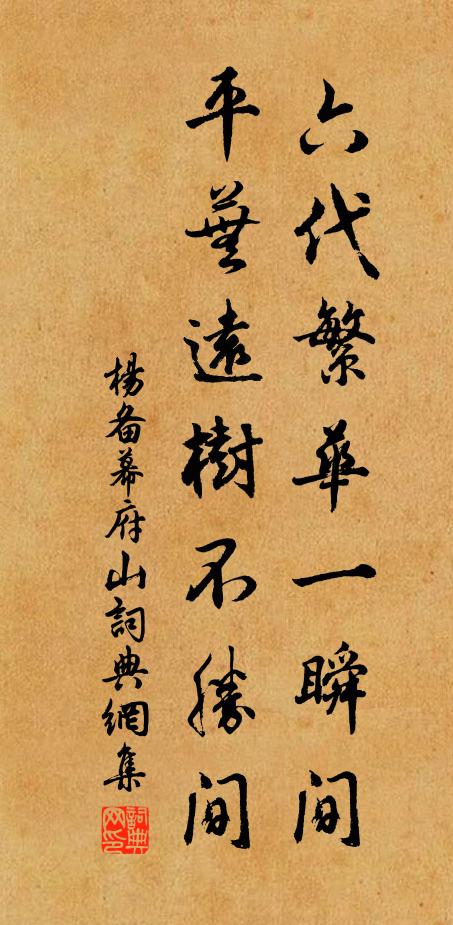 六代繁華一瞬间
平蕪遠樹不勝间
楊备幕府山詞典網集
詞典网印